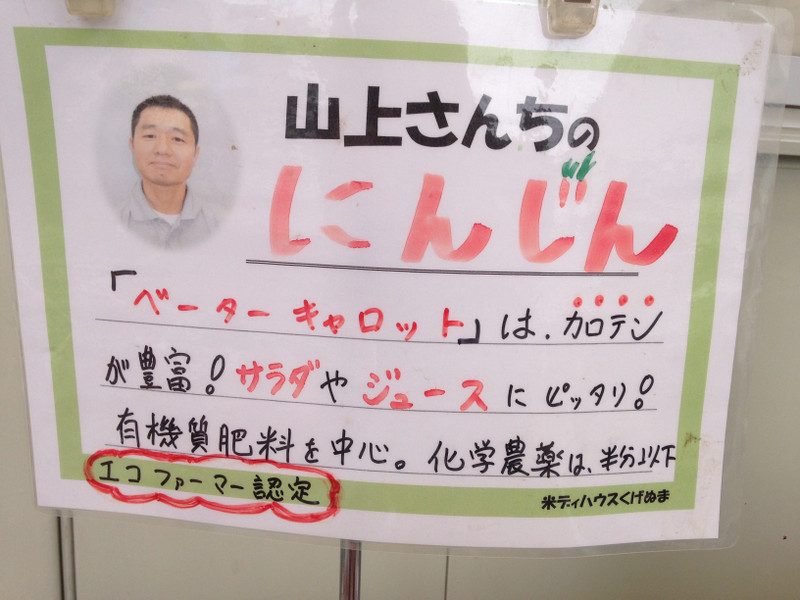 山上さんちの
にんじん
「ベーターキャロット」は、カロテン
が豊富！サラダやジュースにピッタリ！
有機質肥料を中心。化学農薬は、半分以下
エコファーマー認定
米ディハウスくげぬま